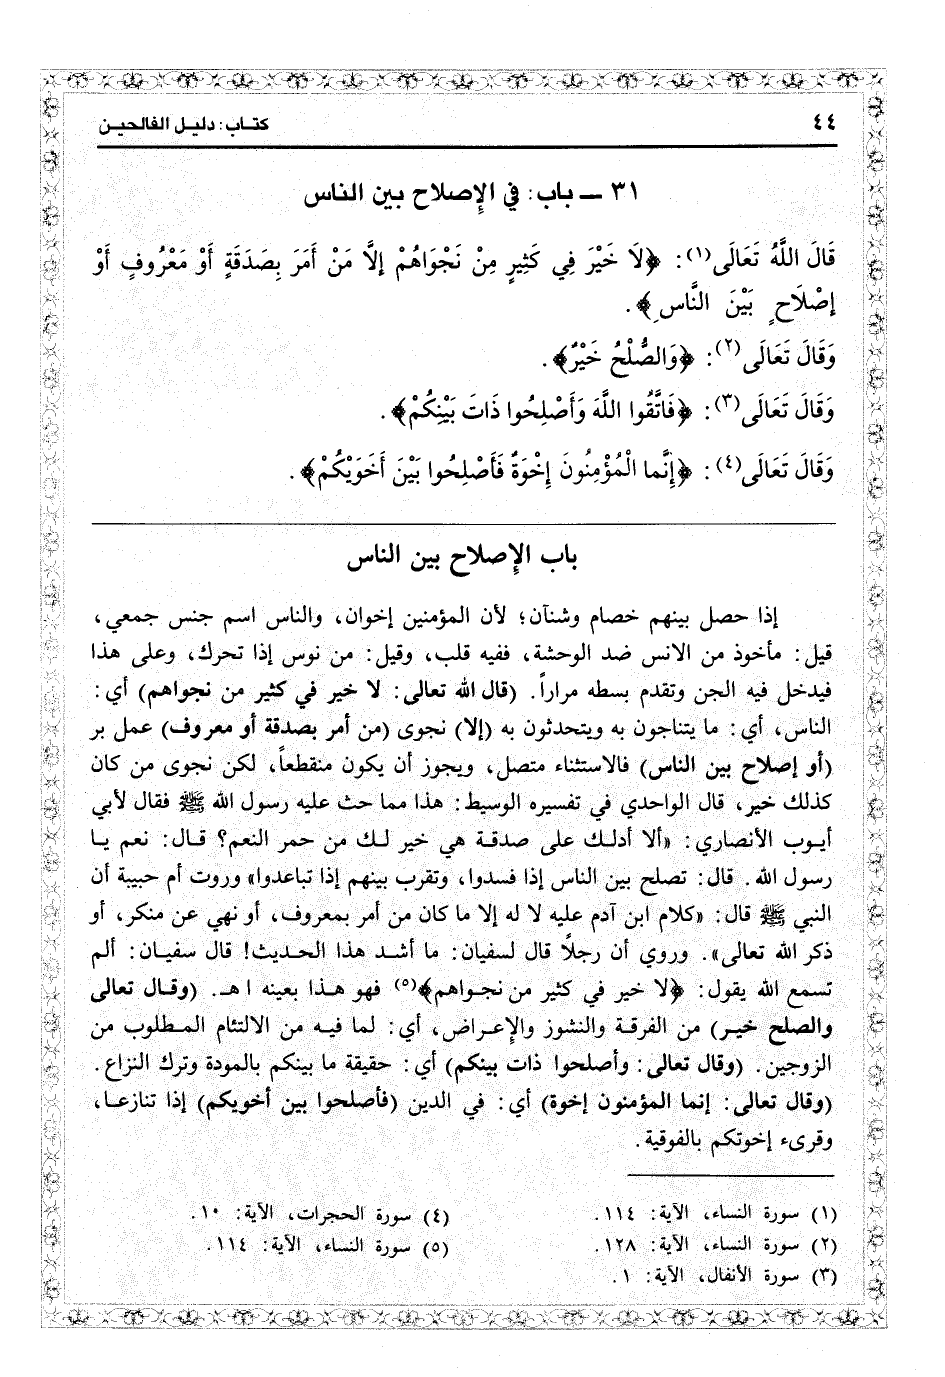 ٤٤
كتاب: دليل الفالحين
٣١ ــ باب: في الإصلاح بين الناس
قَالَ اللَّهُ تَعَالَى(١): ﴿لَا خَيْرَ فِي كَثِيرٍ مِنْ نَجْوَاهُمْ إلَّا مَنْ أَمَرَ بِصَدَقَةٍ أَوْ مَعْرُوفٍ أَوْ
إصْلَاحٍ بَيْنَ النَّاسِ﴾.
وَقَالَ تَعَالَى(٢): ﴿وَالصُّلْحُ خَيْرٌ﴾.
وَقَالَ تَعَالَى(٣): ﴿فَاتَّقُوا اللَّهَ وَأَصْلِحُوا ذَاتَ بَيْنِكُمْ﴾.
وَقَالَ تَعَالَى(٤): ﴿إِنَّما الْمُؤْمِنُونَ إِخْوَةٌ فَأَصْلِحُوا بَيْنَ أَخَوَيْكُمْ﴾.
باب الإصلاح بين الناس
إذا حصل بينهم خصام وشنآن؛ لأن المؤمنين إخوان، والناس اسم جنس جمعي،
قيل: مأخوذ من الانس ضد الوحشة، ففيه قلب، وقيل: من نوس إذا تحرك، وعلى هذا
فيدخل فيه الجن وتقدم بسطه مراراً. (قال الله تعالى: لا خير في كثير من نجواهم) أي:
الناس، أي: ما يتناجون به ويتحدثون به (إلا) نجوى (من أمر بصدقة أو معروف) عمل بر
(أو إصلاح بين الناس) فالاستثناء متصل، ويجوز أن يكون منقطعاً، لكن نجوى من كان
كذلك خير، قال الواحدي في تفسيره الوسيط: هذا مما حث عليه رسول الله ﷺ فقال لأبي
أيوب الأنصاري: «ألا أدلك على صدقة هي خير لك من حمر النعم؟ قال: نعم يا
رسول الله. قال: تصلح بين الناس إذا فسدوا، وتقرب بينهم إذا تباعدوا» وروت أم حبيبة أن
النبي ﷺ قال: «كلام ابن آدم عليه لا له إلا ما كان من أمر بمعروف، أو نهي عن منكر، أو
ذكر الله تعالى». وروي أن رجلاً قال لسفيان: ما أشد هذا الحديث! قال سفيان: ألم
تسمع الله يقول: ﴿لا خير في كثير من نجواهم﴾(٥) فهو هذا بعينه اهـ. (وقال تعالى
والصلح خير) من الفرقة والنشوز والإعراض، أي: لما فيه من الالتئام المطلوب من
الزوجين. (وقال تعالى: وأصلحوا ذات بينكم) أي: حقيقة ما بينكم بالمودة وترك النزاع.
(وقال تعالى: إنما المؤمنون إخوة) أي: في الدين (فأصلحوا بين أخويكم) إذا تنازعا،
وقرىء إخوتكم بالفوقية.
(١) سورة النساء، الآية: ١١٤.
(٢) سورة النساء، الآية: ١٢٨.
(٣) سورة الأنفال، الآية: ١.
(٤) سورة الحجرات، الآية: ١٠.
(٥) سورة النساء، الآية: ١١٤.